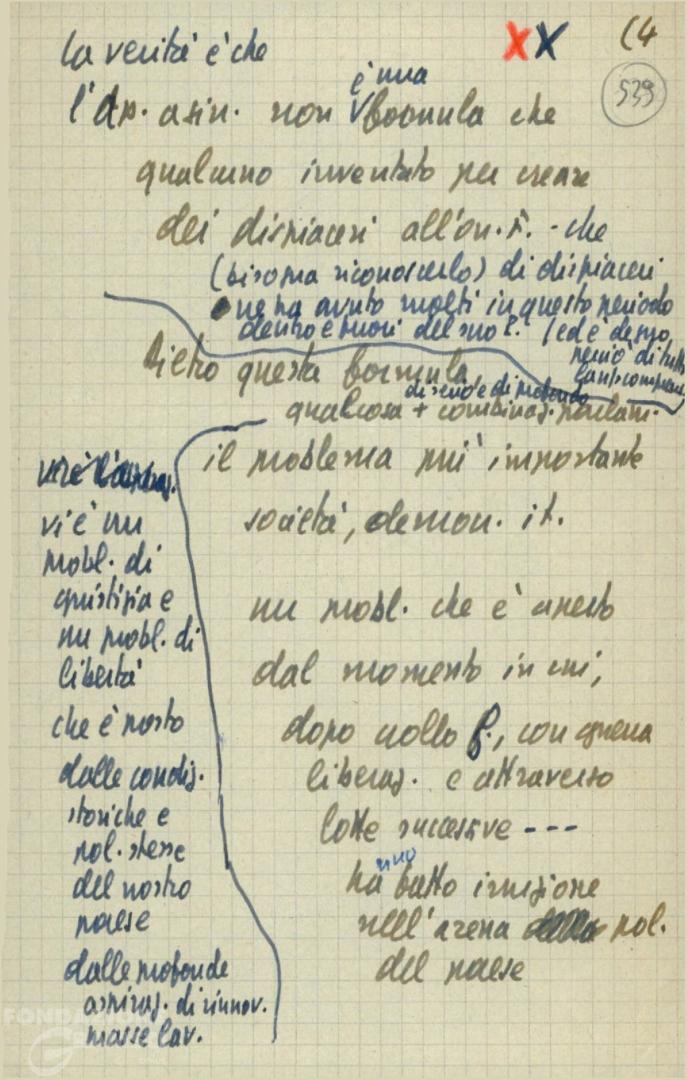 (4
XX
539
la verità è che
è una
l'ap. a sin. non formula che
qualcuno inventato per creare
dei dispiaceri all'on. F. - che
(bisogna riconoscerlo) di dispiaceri
ne ha avuto molti in questo periodo
dentro e fuori del suo P. (ed è degno
perciò di tutta
Dietro questa formula,
di serio e di profondo
qualcosa + combinaz. parlam.
il problema più importante
società, democr. it.
un probl. che è aperto
dal momento in cui,
dopo crollo f., con guerra
liberaz. e attraverso
lotte successive ---
ha fatto irruzione
nell'arena pol.
del paese
vi è un
probl. di
giustizia e
un probl. di
libertà
che è posto
dalle condiz.
storiche e
pol. stesse
del nostro
paese
dalle profonde
aspiraz. di rinnov.
masse lav.
FONDAZIONE